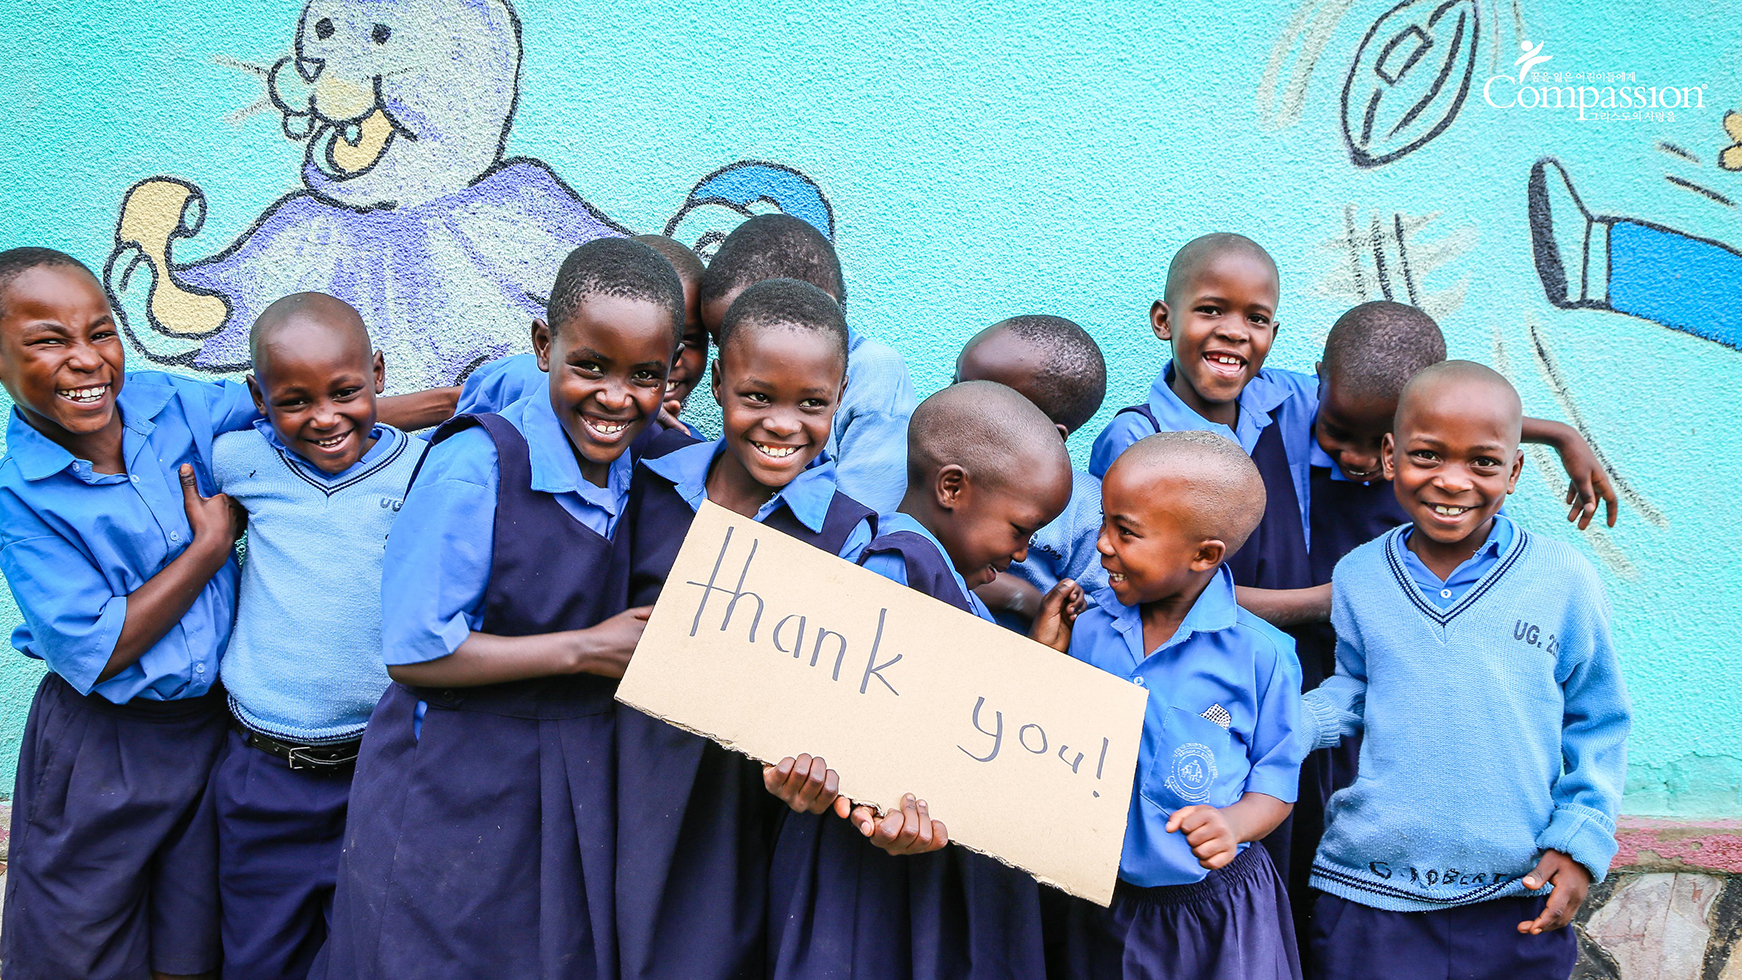 꿈을 잃은 어린이들에게
Compassion
그리스도의 사랑을
UG.
thank you!
UG. 20
G. ROBERT